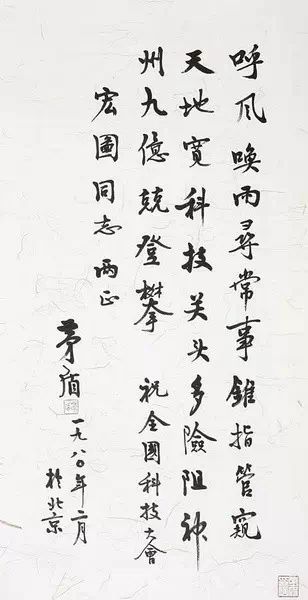 呼风唤雨寻常事锥指管窥
天地宽科技关头多險阻神
州九億競登攀 祝全國科技大會
宏圖同志两正
茅盾
一九八〇年二月
於北京